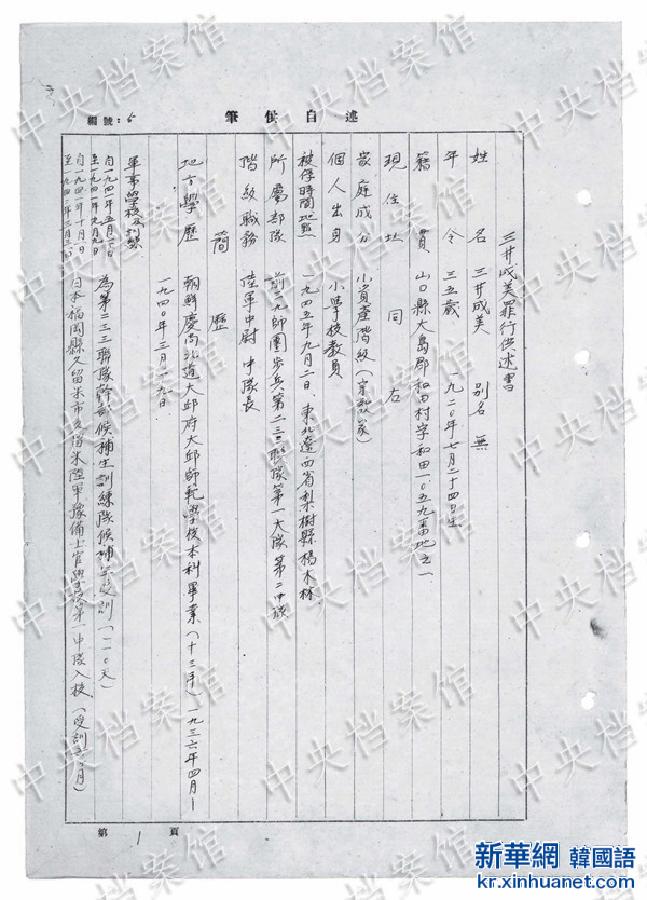 述自供筆
編號：6
三井成美罪行供述書
姓名 三井成美 別名 無
年令 三五歲 一九二〇年七月二十四日生
籍貫 山口縣大島郡和田村字和田一〇五九番地之一
現住址 同右
家庭成分 小資產階級
個人出身 小學校教員
被俘時間地點 一九四五年九月二日、東北遼西省梨樹縣楊木林
所屬部隊 前三九師團步兵第二三三聯隊第一大隊第二中隊
階級職務 陸軍中尉 中隊長
簡歷
地方學歷 朝鮮慶尚北道大邱府大邱師範學校本科畢業 一九三六年四月—
一九四〇年三月十九日
軍事學校及訓練
為第二三三聯隊幹部候補生訓練隊候補生受訓（一一〇天）
日本福岡縣久留米市久留米陸軍豫備士官學校第一中隊入校
第 1 頁
中央档案馆
新華網 韓國語
kr.xinhuanet.com